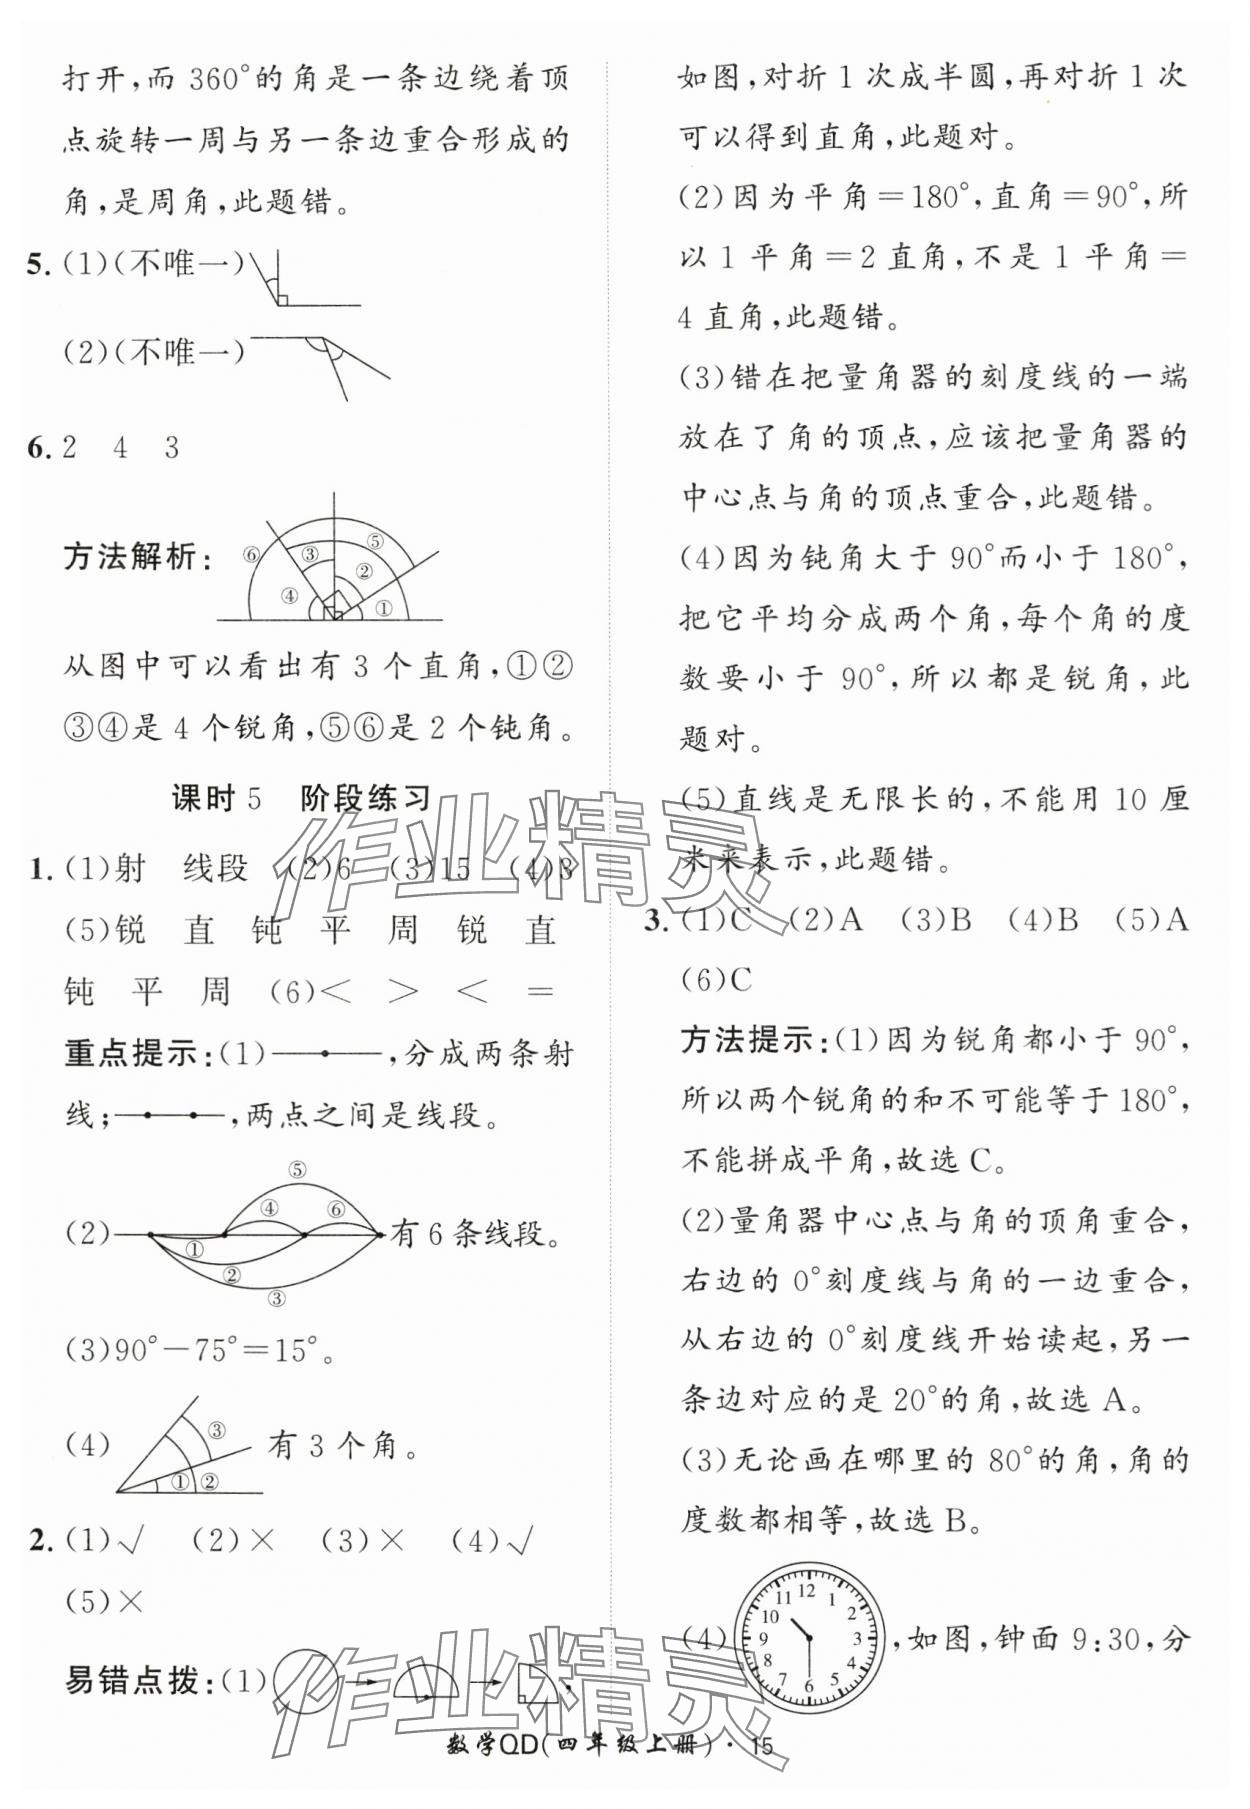 打开,而 360°的角是一条边绕着顶
点旋转一周与另一条边重合形成的
角,是周角,此题错。
5. (1)(不唯一)
(2)(不唯一)
6. 2 4 3
方法解析:
① ② ③ ④ ⑤ ⑥
从图中可以看出有 3 个直角,①②
③④是 4 个锐角,⑤⑥是 2 个钝角。
课时 5 阶段练习
1. (1)射 线段 (2)6 (3)15 (4)3
(5)锐 直 钝 平 周 锐 直
钝 平 周 (6)< > < =
重点提示:(1) ,分成两条射
线; ,两点之间是线段。
(2) ① ② ③ ④ ⑤ ⑥ 有 6 条线段。
(3)90°-75°=15°。
(4) ① ② ③ 有 3 个角。
2. (1)√ (2)× (3)× (4)√
(5)×
易错点拨:(1)
如图,对折 1 次成半圆,再对折 1 次
可以得到直角,此题对。
(2)因为平角=180°,直角=90°,所
以 1 平角=2 直角,不是 1 平角=
4 直角,此题错。
(3)错在把量角器的刻度线的一端
放在了角的顶点,应该把量角器的
中心点与角的顶点重合,此题错。
(4)因为钝角大于 90°而小于 180°,
把它平均分成两个角,每个角的度
数要小于 90°,所以都是锐角,此
题对。
(5)直线是无限长的,不能用 10 厘
米来表示,此题错。
3. (1)C (2)A (3)B (4)B (5)A
(6)C
方法提示:(1)因为锐角都小于 90°,
所以两个锐角的和不可能等于 180°,
不能拼成平角,故选 C。
(2)量角器中心点与角的顶角重合,
右边的 0°刻度线与角的一边重合,
从右边的 0°刻度线开始读起,另一
条边对应的是 20°的角,故选 A。
(3)无论画在哪里的 80°的角,角的
度数都相等,故选 B。
(4) 12 1 2 3 4 5 6 7 8 9 10 11 ,如图,钟面 9:30,分
数学QD(四年级上册)·15
作业精灵
作业精灵